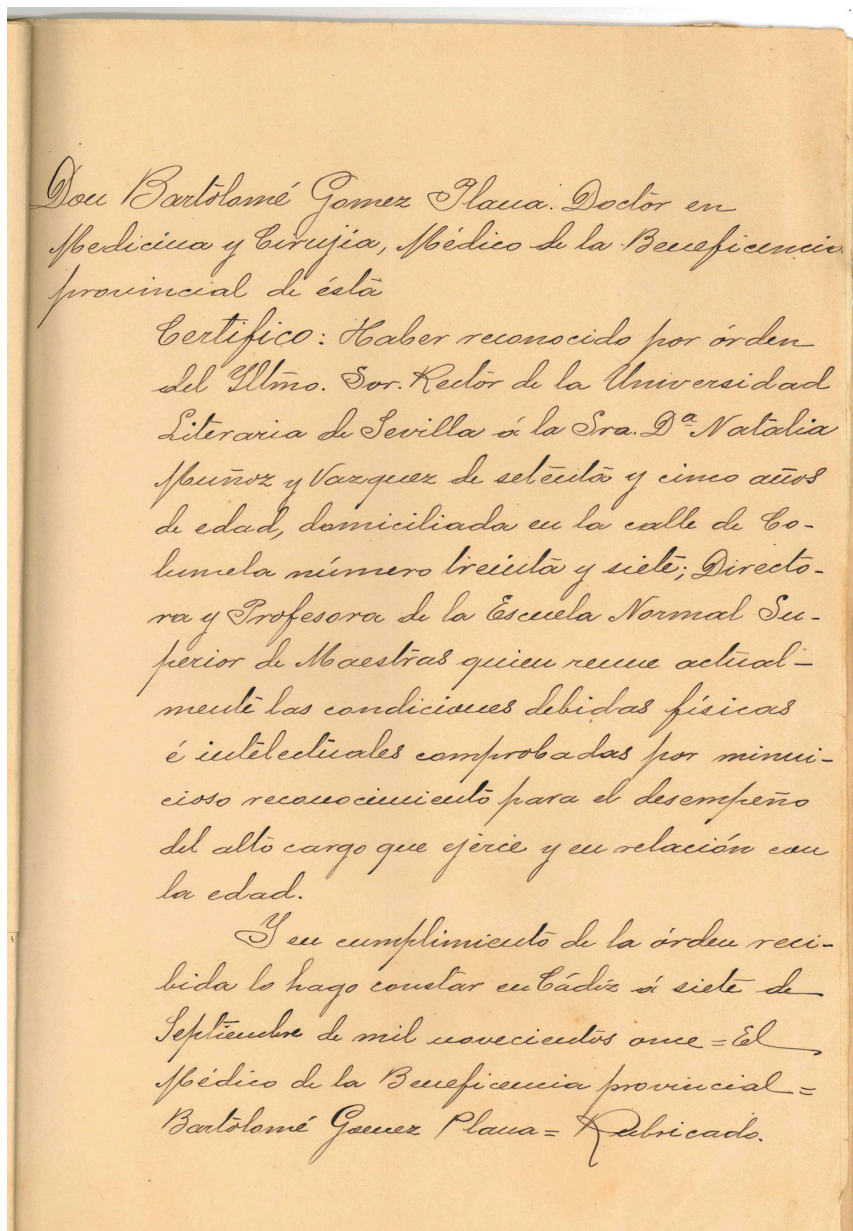 Don Bartolomé Gomez Plana. Doctor en
Medicina y Cirujía, Médico de la Beneficencia
provincial de ésta
Certifico: Haber reconocido por órden
del Yltmo. Sor. Rector de la Universidad
Literaria de Sevilla á la Sra. Dª Natalia
Muñoz y Vazquez de setenta y cinco años
de edad, domiciliada en la calle de Co-
lumela número treinta y siete; Directo-
ra y Profesora de la Escuela Normal Su-
perior de Maestras quien reune actual-
mente las condiciones debidas físicas
é intelectuales comprobadas por minu-
cioso reconocimiento para el desempeño
del alto cargo que ejerce y en relación con
la edad.
Y en cumplimiento de la órden reci-
bida lo hago constar en Cádiz á siete de
Septiembre de mil novecientos once = El
Médico de la Beneficencia provincial =
Bartolomé Gomez Plana = Rubricado.